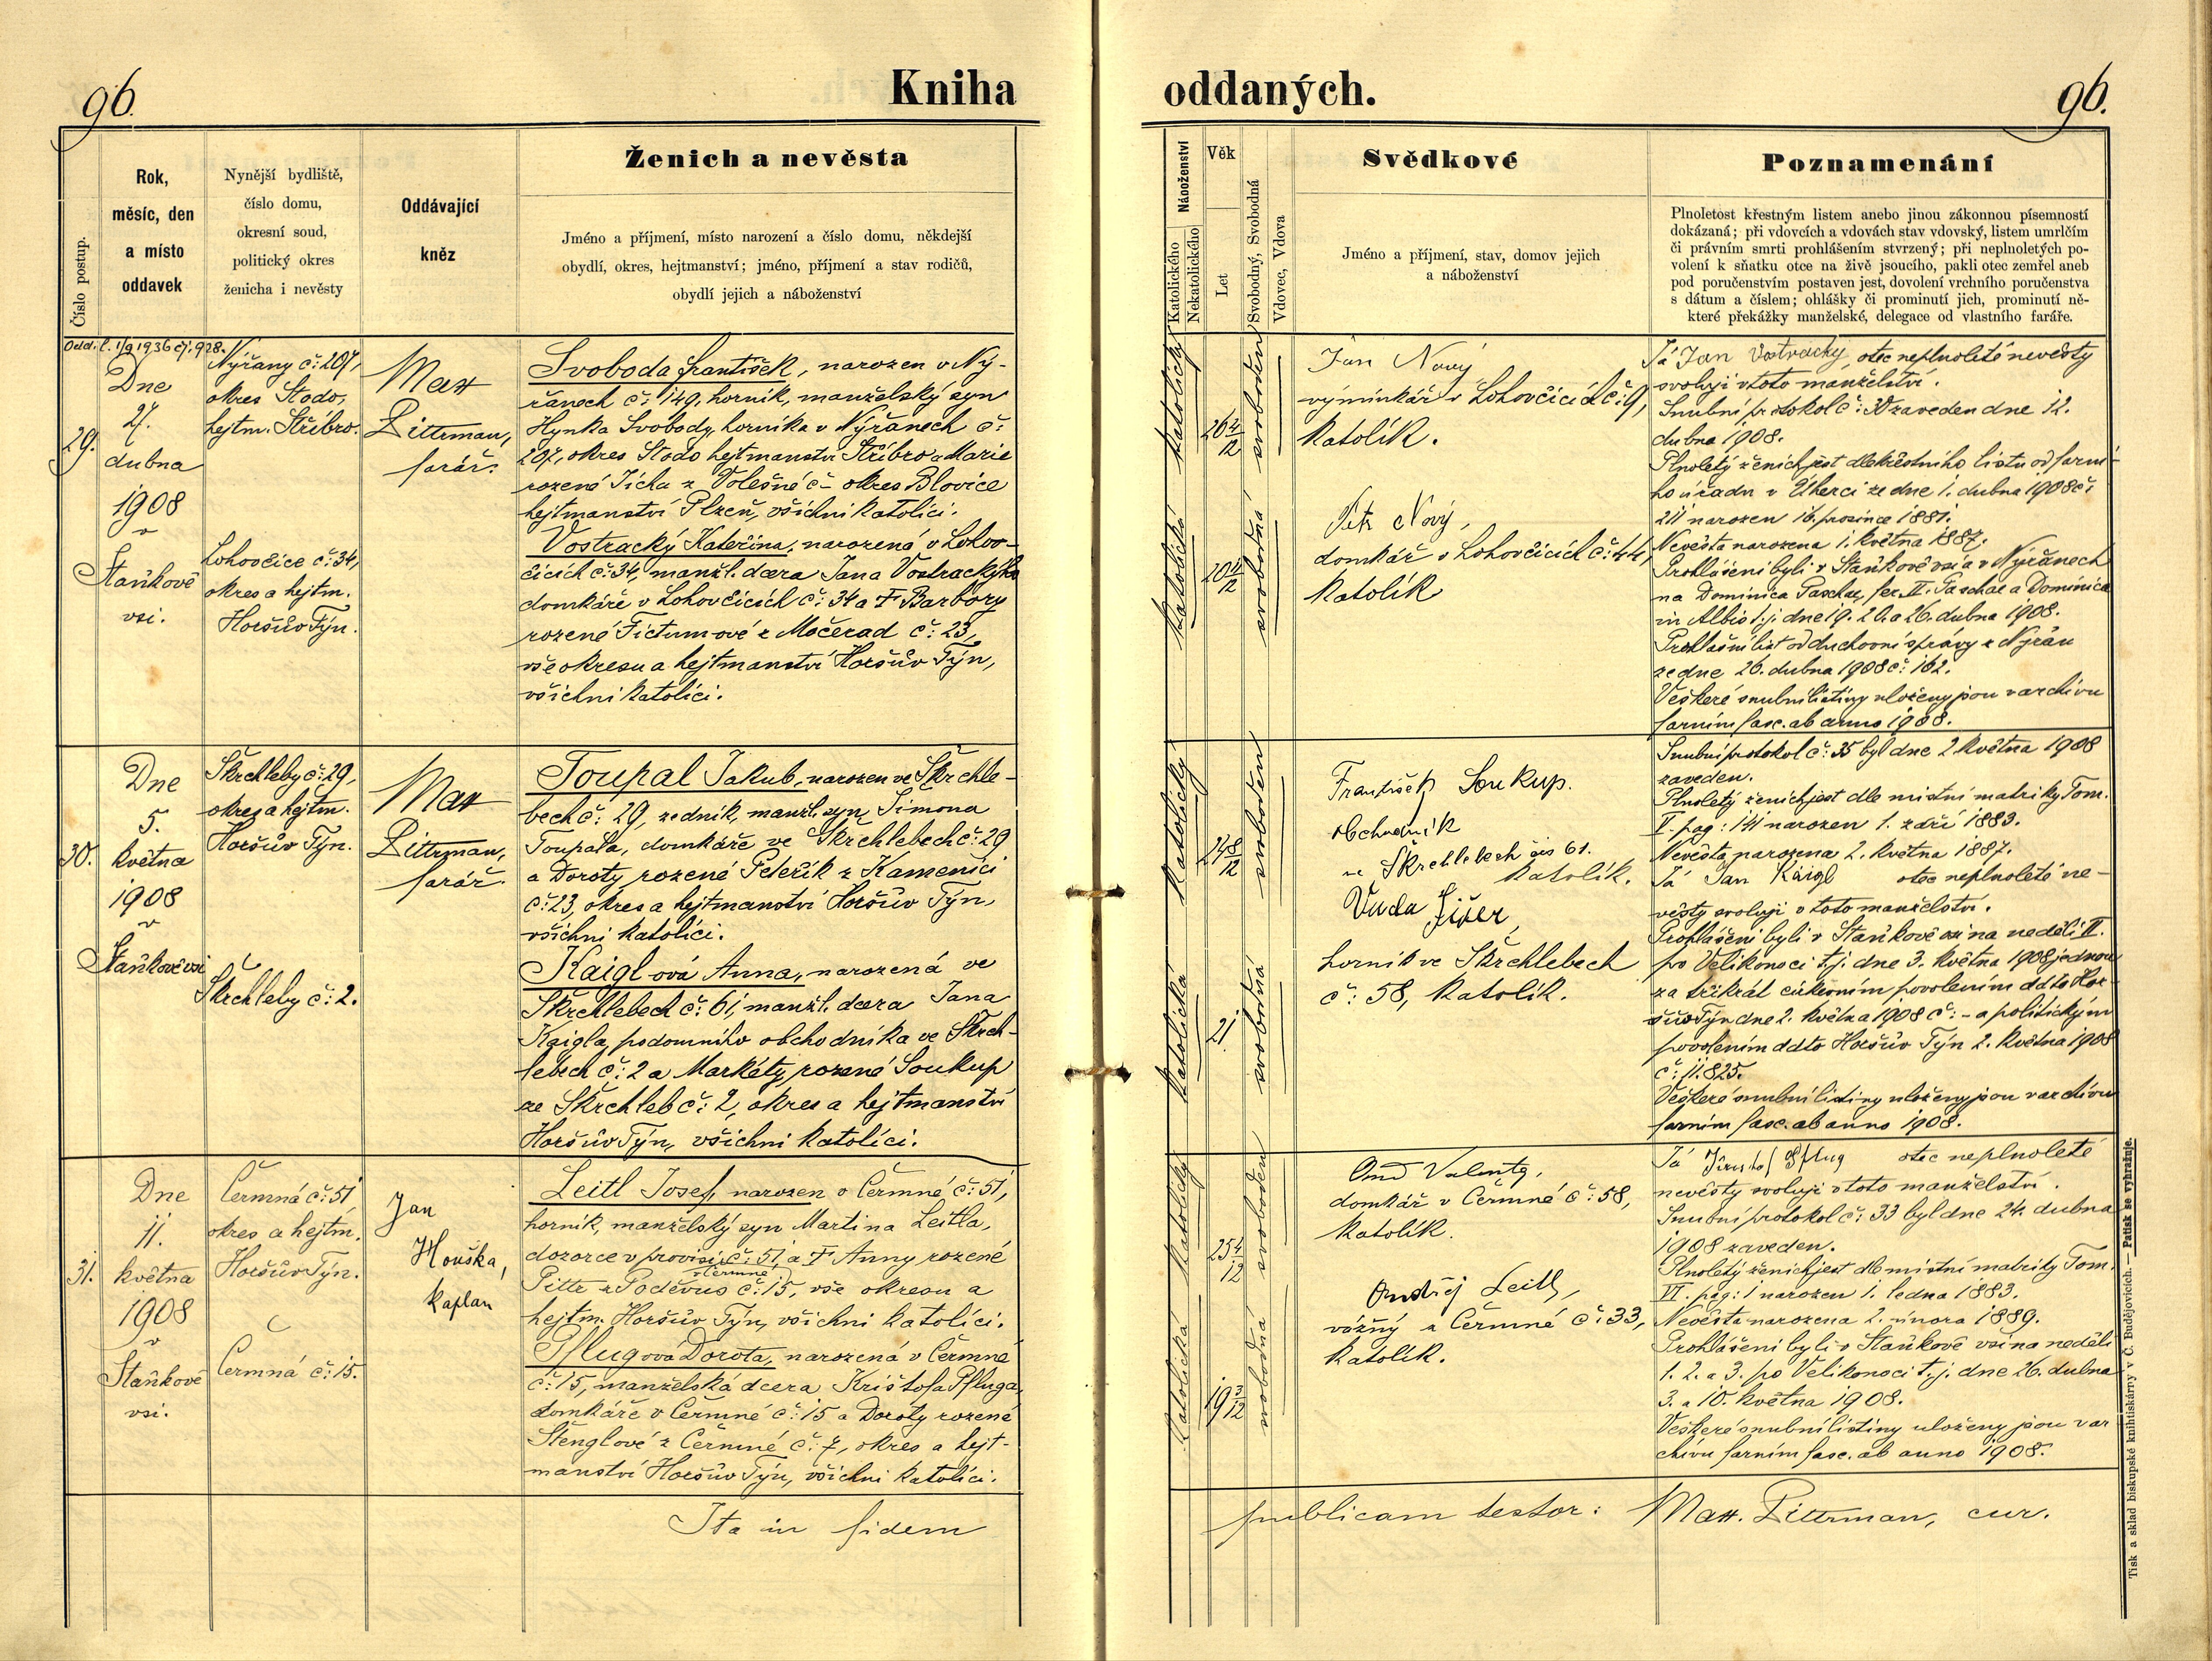 96.
Kniha
oddaných.
96.
Číslo postup.
Rok,
měsíc, den
a místo
oddavek
Nynější bydliště,
číslo domu,
okresní soud,
politický okres
ženicha i nevěsty
Oddávající
kněz
Ženich a nevěsta
Jméno a příjmení, místo narození a číslo domu, někdejší
obydlí, okres, hejtmanství; jméno, příjmení a stav rodičů,
obydlí jejich a náboženství
Náboženství
Katolického
Nekatolického
Věk
Let
Svobodný, Svobodná
Vdovec, Vdova
Svědkové
Jméno a příjmení, stav, domov jejich
a náboženství
Poznamenání
Plnoletost křestným listem anebo jinou zákonnou písemností
dokázaná; při vdovcích a vdovách stav vdovský, listem umrlčím
či právním smrti prohlášením stvrzený; při neplnoletých po-
volení k sňatku otce na živě jsoucího, pakli otec zemřel aneb
pod poručenstvím postaven jest, dovolení vrchního poručenstva
s dátum a číslem; ohlášky či prominutí jich, prominutí ně-
které překážky manželské, delegace od vlastního faráře.
Odd. l. 1/9 1936 čj. 928.
29.
Dne
27.
dubna
1908
v
Staňkově
vsi.
Nýřany č: 207,
okres Stodo,
hejtm. Stříbro.
Lohovčice č: 34,
okres a hejtm.
Horšův Týn.
Max
Littrman,
farář.
Svoboda František, narozen v Ný-
řanech č: 149, horník, manželský syn
Hynka Svobody, horníka v Nýřanech č:
207, okres Stodo hejtmanství Stříbro a Marie
rozené Jícha z Volešné č - okres Blovice
hejtmanství Plzeň, všichni katolíci.
Vostracký Kateřina, narozená v Lohov-
čicích č: 34, manžl. dcera Jana Vostrackýho
domkáře v Lohovčicích č: 34 a † Barbory
rozené Fictumové z Močerad č: 23,
vše okresu a hejtmanství Horšův Týn,
všichni katolíci.
katolický
26 4/12
svoboden
katolická
20 11/12
svobodná
Jan Nový
výminkář v Lohovčicích č: 9,
katolík.
Petr Nový,
domkář v Lohovčicích č: 44,
katolík
Já Jan Vostracký otec neplnoleté nevěsty
svoluji v toto manželství.
Snubní protokol č: 30 zaveden dne 12.
dubna 1908.
Plnoletý ženich jest dle křestního listu od farní-
ho úřadu v Úherci ze dne 1. dubna 1908 č:
211 narozen 16. prosince 1881.
Nevěsta narozena 1. května 1887.
Prohlášeni byli v Staňkově vsi a v Nýřanech
na Dominica Paschae, fer. II. Paschae a Dominica
in Albis t. j. dne 19. 20. a 26. dubna 1908.
Prohlašní list od duchovní správy z Nýřan
ze dne 26. dubna 1908 č: 162.
Veškeré snubní listiny uloženy jsou v archivu
farním fasc. ab anno 1908.
30.
Dne
5.
května
1908
v
Staňkově vsi
Škrchleby č: 29,
okres a hejtm.
Horšův Týn.
Škrchleby č: 2.
Max
Littrman,
farář.
Toupal Jakub, narozen ve Škrchle-
bech č: 29, zedník, manžl. syn Šimona
Toupala, domkáře ve Škrchlebech č: 29
a Doroty rozené Peteřík z Kamenici
č: 23, okres a hejtmanství Horšův Týn,
všichni katolíci.
Kaigl-ová Anna, narozená ve
Škrchlebech č: 61, manžl. dcera Jana
Kaigla, podomního obchodníka ve Škrch-
lebech č: 2 a Markéty, rozené Soukup
ze Škrchleb č: 2, okres a hejtmanství
Horšův Týn, všichni katolíci.
katolický
24 8/12
svoboden
katolická
21.
svobodná
František Soukup.
obchodník
ve Škrchlebech čis 61.
katolík.
horník ve Škrchlebech
č: 58, katolík.
Snubní protokol č: 35 byl dne 2 května 1908
zaveden.
Plnoletý ženich jest dle místní matriky Tom.
V. pag: 141 narozen 1. září 1883.
Nevěsta narozena 2. května 1887.
Já Jan Kaigl otec neplnoleté ne-
věsty svoluji v toto manželství.
Prohlášeni byli v Staňkově vsi na neděli II.
po Velikonoci t. j. dne 3. května 1908 jednou
za třikrát církevním povolením ddto Hor-
šův Týn dne 2. května 1908 č: - a politickým
povolením ddto Horšův Týn 2. května 1908
č: 11.825.
Veškeré snubní listiny uloženy jsou v archivu
farním fasc. ab anno 1908.
31.
Dne
11.
května
1908
v
Staňkově
vsi.
Čermná č: 51,
okres a hejtm.
Horšův Týn.
Čermná č: 15.
Jan
Houška,
kaplan
Leitl Josef, narozen v Čermné č: 51,
horník, manželský syn Martina Leitla,
dozorce v provisi č: 51, a † Anny rozené
v Čermné
Pittr z Poděvus č: 15, vše okresu a
hejtm. Horšův Týn, všichni katolíci.
Pflugová Dorota, narozená v Čermné
č: 15, manželská dcera Krištofa Pfluga,
domkáře v Čermné č: 15 a Doroty rozené
Štenglové z Čermné č: 7, okres a hejt-
manství Horšův Týn, všichni katolíci.
katolický
25 4/12
svoboden
katolická
19 3/12
svobodná
Valenta,
domkář v Čermné č: 58,
katolík.
Ondřej Leitl,
vozný z Čermné č: 33,
katolík.
Já Pflug otec neplnoleté
nevěsty svoluji v toto manželství.
Snubní protokol č: 33 byl dne 24. dubna
1908 zaveden.
Plnoletý ženich jest dle místní matriky Tom.
VI. pag: 1 narozen 1. ledna 1883.
Nevěsta narozena 2. února 1889.
Prohlášeni byli v Staňkově vsi na neděli
1. 2. a 3. po Velikonoci t. j. dne 26. dubna
3. a 10. května 1908.
Veškeré snubní listiny uloženy jsou v ar
chivu farním fasc. ab anno 1908.
Ita in fidem
publicam testor: Max. Littrman, cur.
Tisk a sklad biskupské knihtiskárny v Č. Budějovicích. — Patisk se vyhražuje.